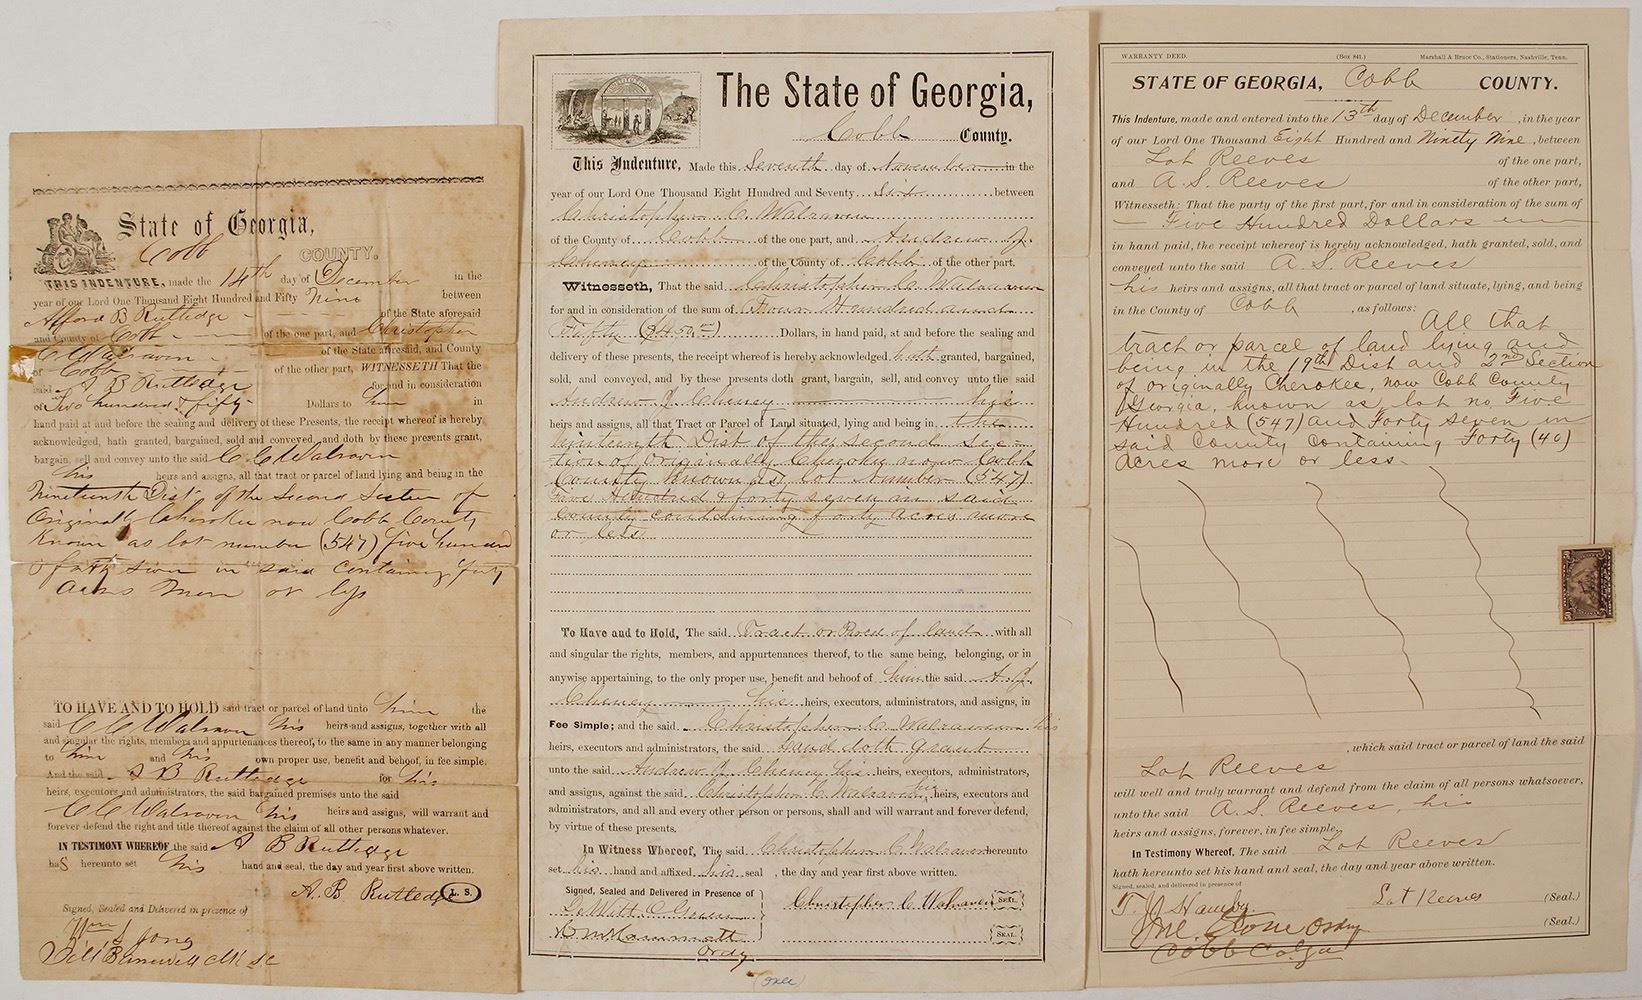 State of Georgia,
Cobb COUNTY.
THIS INDENTURE, made the 14th day of December in the
year of our Lord One Thousand Eight Hundred and Fifty Nine between
Alford B Rutledge of the State aforesaid
and County of Cobb of the one part, and Christopher
C Walraven of the State aforesaid, and County
of Cobb of the other part, WITNESSETH That the
said A B Rutledge for and in consideration
of Two hundred & fifty Dollars to him in
hand paid at and before the sealing and delivery of these Presents, the receipt whereof is hereby
acknowledged, hath granted, bargained, sold and conveyed, and doth by these presents grant,
bargain, sell and convey unto the said C. C Walraven
his heirs and assigns, all that tract or parcel of land lying and being in the
Nineteenth Dist of the Second Section of
Originally Cherokee now Cobb County
Known as lot number (547) five hundred
& forty seven in said containing forty
acres more or less
TO HAVE AND TO HOLD said tract or parcel of land unto him the
said C C Walraven his heirs and assigns, together with all
and singular the rights, members and appurtenances thereof, to the same in any manner belonging
to him and his own proper use, benefit and behoof, in fee simple.
And the said A B Rutledge for his
heirs, executors and administrators, the said bargained premises unto the said
C C Walraven his heirs and assigns, will warrant and
forever defend the right and title thereof against the claim of all other persons whatever.
IN TESTIMONY WHEREOF the said A B Rutledge
haS hereunto set his hand and seal, the day and year first above written.
A. B Rutledge L. S.
Signed, Sealed and Delivered in presence of
The State of Georgia,
Cobb County.
This Indenture, Made this Seventh day of November in the
year of our Lord One Thousand Eight Hundred and Seventy Six between
Christopher C. Walraven
of the County of Cobb of the one part, and Andrew J.
Cheney of the County of Cobb of the other part.
Witnesseth, That the said Christopher C. Walraven
for and in consideration of the sum of Four Hundred and
Fifty ($450) Dollars, in hand paid, at and before the sealing and
delivery of these presents, the receipt whereof is hereby acknowledged, hath granted, bargained,
sold, and conveyed, and by these presents doth grant, bargain, sell, and convey unto the said
Andrew J. Cheney his
heirs and assigns, all that Tract or Parcel of Land situated, lying and being in the
Nineteenth Dist of the Second Sec-
tion of Originally Cherokee now Cobb
County Known as lot number (547)
Five Hundred & forty seven in said
County containing forty acres more
or less
To Have and to Hold, The said Tract or Parcel of land with all
and singular the rights, members, and appurtenances thereof, to the same being, belonging, or in
anywise appertaining, to the only proper use, benefit and behoof of him the said A. J.
Cheney his heirs, executors, administrators, and assigns, in
Fee Simple; and the said Christopher C. Walraven his
heirs, executors and administrators, the said land doth grant
unto the said Andrew J. Cheney his heirs, executors, administrators,
and assigns, against the said Christopher C. Walraven his heirs, executors and
administrators, and all and every other person or persons, shall and will warrant and forever defend,
by virtue of these presents.
In Witness Whereof, The said Christopher C. Walraven hereunto
set his hand and affixed his seal, the day and year first above written.
Signed, Sealed and Delivered in Presence of
Christopher C Walraven SEAL.
SEAL.
Ordy
(over)
WARRANTY DEED. (Box 841.) Marshall & Bruce Co., Stationers, Nashville, Tenn.
STATE OF GEORGIA, Cobb COUNTY.
This Indenture, made and entered into the 13th day of December, in the year
of our Lord One Thousand Eight Hundred and Ninety Nine, between
Lot Reeves of the one part,
and A. S. Reeves of the other part,
Witnesseth: That the party of the first part, for and in consideration of the sum of
Five Hundred Dollars
in hand paid, the receipt whereof is hereby acknowledged, hath granted, sold, and
conveyed unto the said A. S. Reeves
his heirs and assigns, all that tract or parcel of land situate, lying, and being
in the County of Cobb, as follows: All that
tract or parcel of land lying and
being in the 19th Dist and 2nd Section
of originally Cherokee, now Cobb County
Georgia, known as lot no. Five
Hundred (547) and Forty Seven in
said County containing Forty (40)
acres more or less
, which said tract or parcel of land the said
Lot Reeves
will well and truly warrant and defend from the claim of all persons whatsoever,
unto the said A. S. Reeves, his
heirs and assigns, forever, in fee simple.
In Testimony Whereof, The said Lot Reeves
hath hereunto set his hand and seal, the day and year above written.
Signed, sealed, and delivered in presence of
Lot Reeves (Seal.)
(Seal.)
Cobb Co. Ga